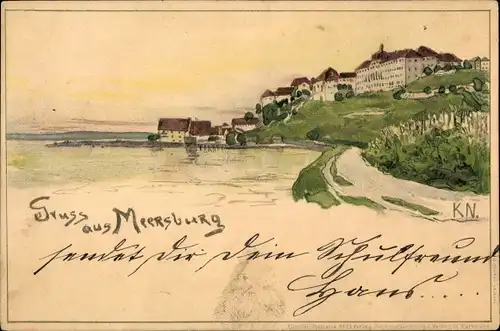 Gruss
aus Meersburg
KN.
sendet Dir Dein Schulfreund
Hans....